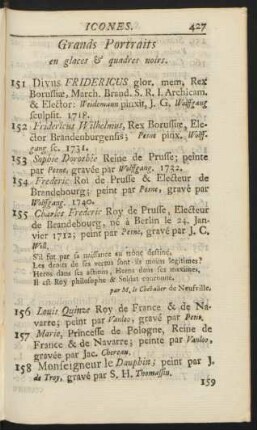 ICONES. 427
Grands Portraits
en glaces & quadres noirs.
151 Divus FRIDERICUS glor. mem, Rex
Borussiæ, March. Brand. S. R. I. Archicam.
& Elector: Weidemann pinxit, J. G. Wolffgang
sculpsit. 1718.
152 Fridericus Wilhelmus, Rex Borussiæ, Elector
Brandenburgensis; Pesne pinx. Wolffgang
sc. 1731.
153 Sophie Dorothée Reine de Prusse; peinte
par Pesne, gravée par Wolffgang. 1732.
154 Frederic Roi de Prusse & Electeur de
Brandebourg; peint par Pesne, gravé par
Wolffgang. 1740.
155 Charles Frederic Roy de Prusse, Electeur
de Brandebourg, né à Berlin le 24. Janvier
1712; peint par Pesne, gravé par J. G.
Will.
S'il fut par sa naissance au trône destiné,
Les droits de ses vertus sont-ils moins legitimes?
Heros dans ses actions, Heros dans ses maximes,
Il est Roy philosophe & Soldat couronné.
par M. le Chevalier de Neufville.
156 Louis Quinze Roy de France & de Navarre;
peint par Vanloo, gravé par Petit.
157 Marie, Princesse de Pologne, Reine de
France & de Navarre; peinte par Vanloo,
gravée par Jac. Chereau.
158 Monseigneur le Dauphin; peint par J.
de Troy, gravé par S. H. Thomassin.
159